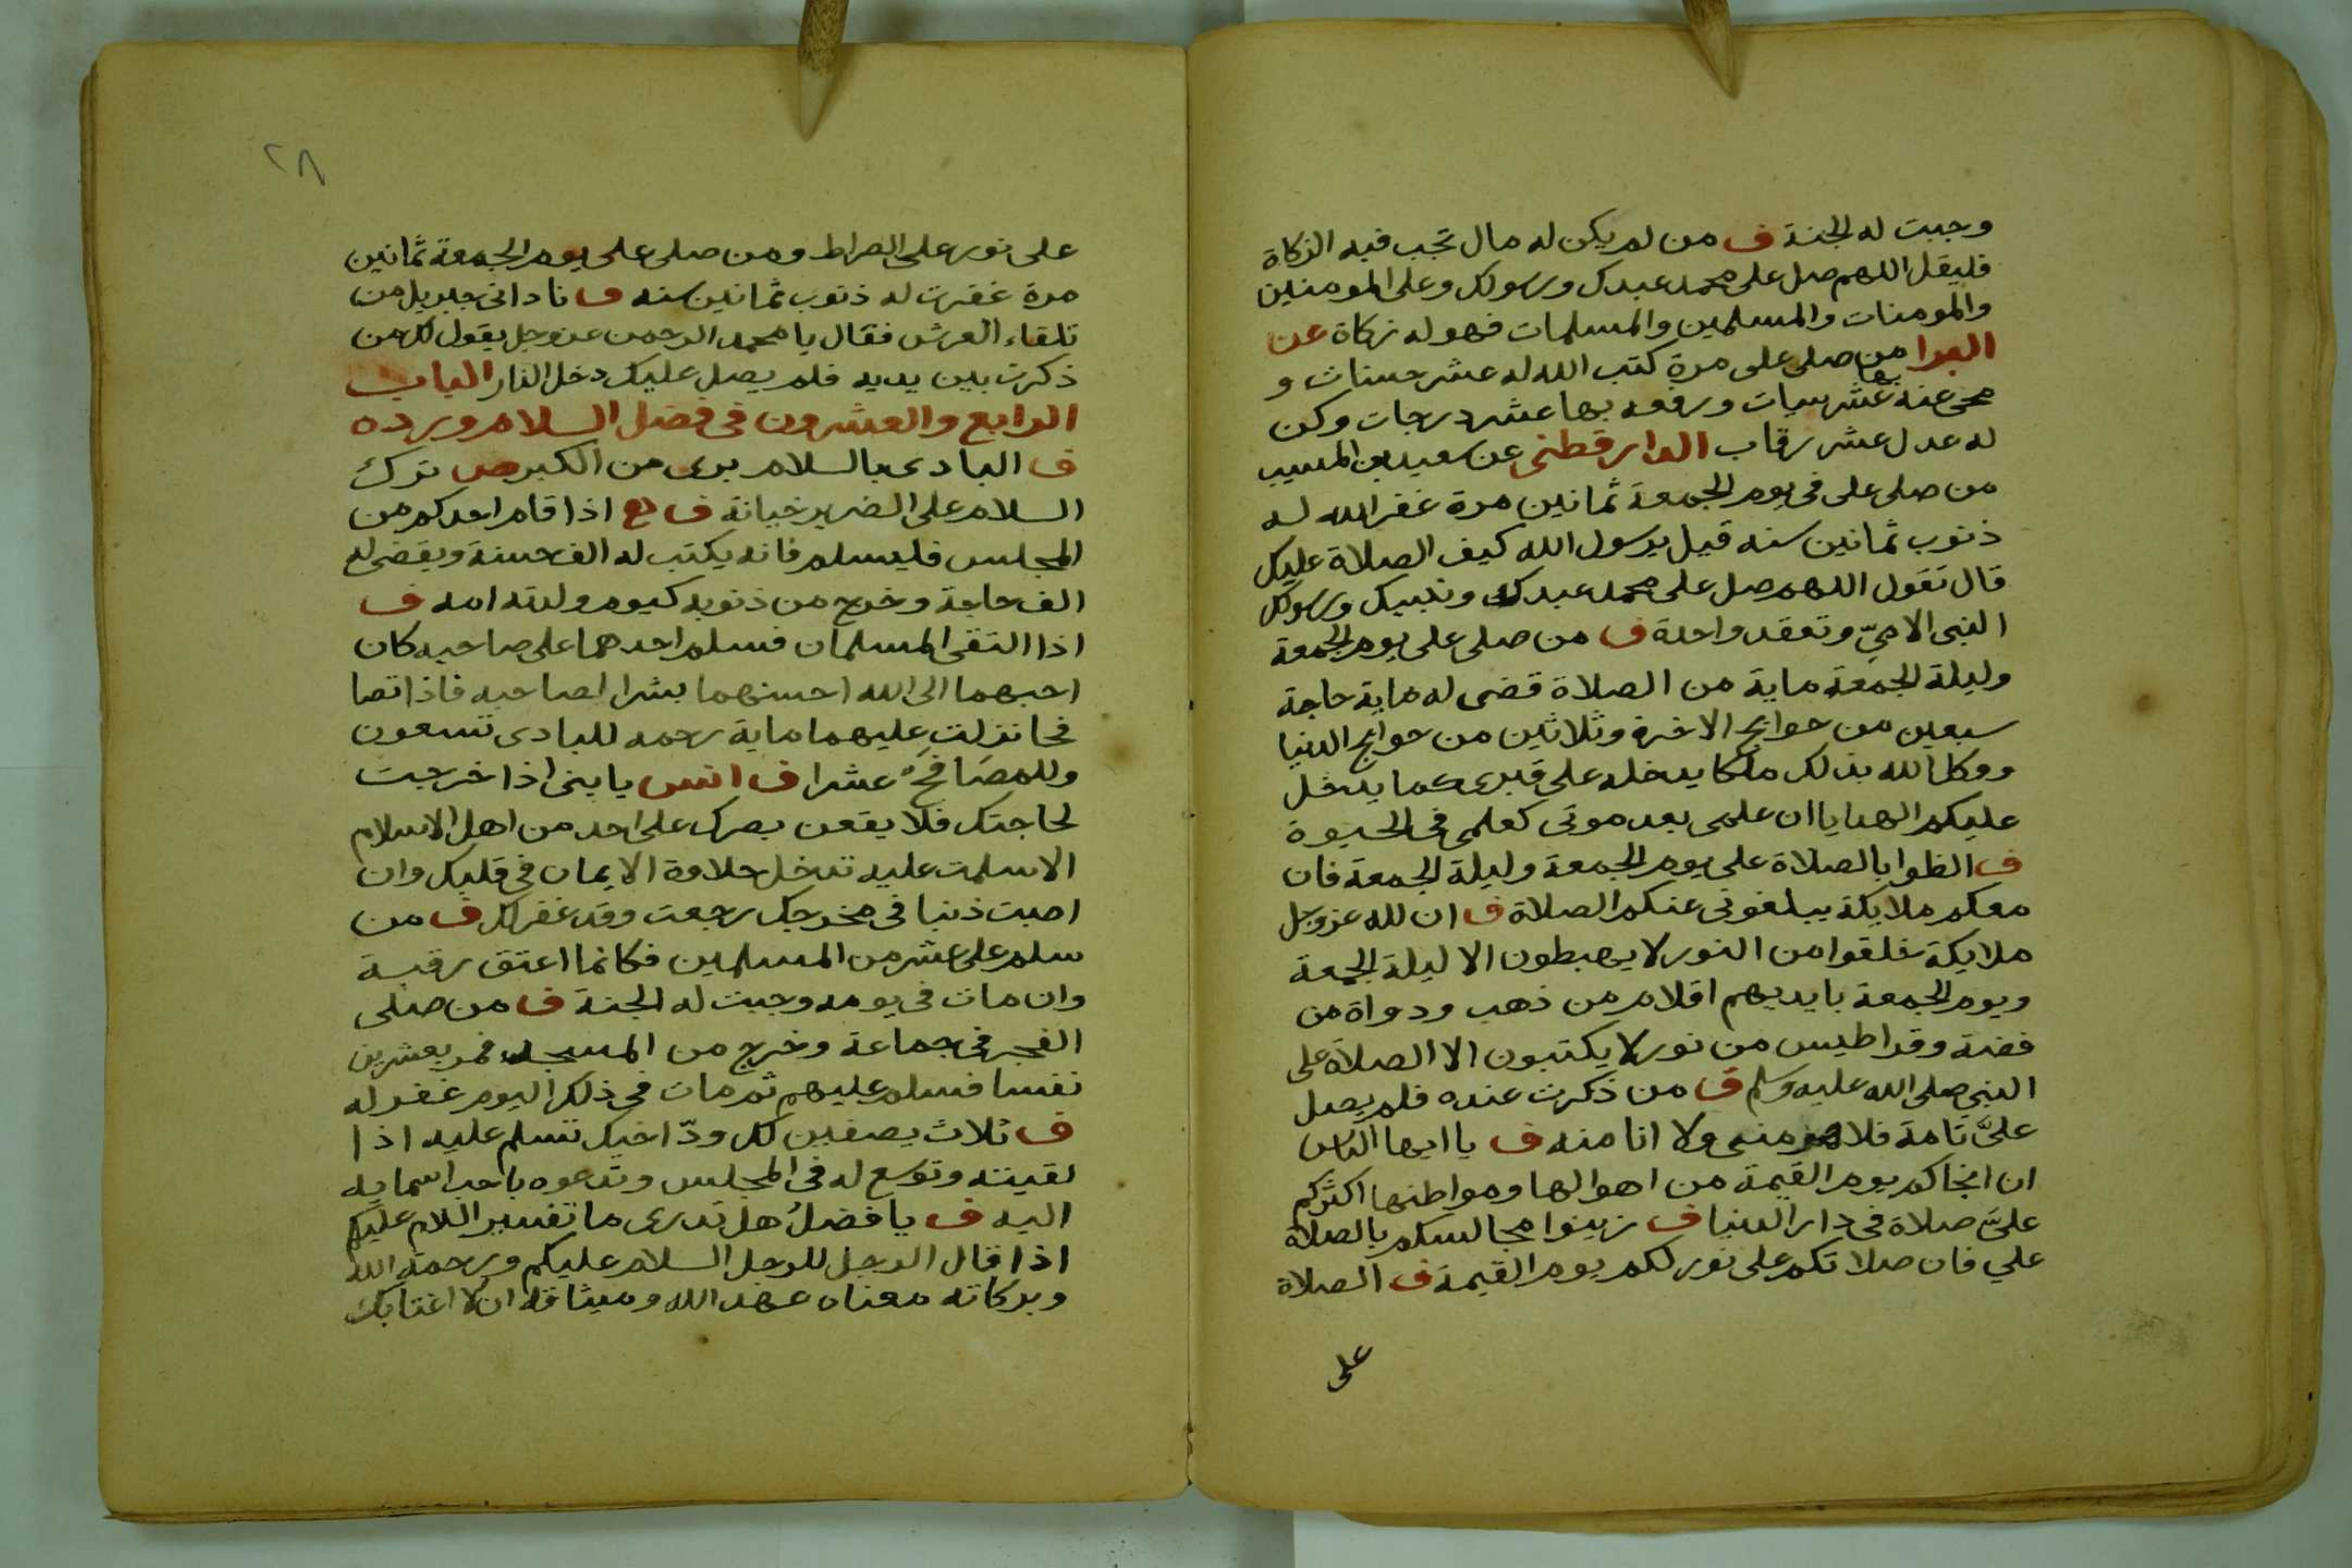 وجبت له الجنة ف من لم يكن له مال تجب فيه الزكاة
فليقل اللهم صل على محمد عبدك ورسولك وعلى المومنين
والمومنات والمسلمين والمسلمات فهو له زكاة عن
البرا من صلى على مرة كتب الله له عشر حسنات و
محى عنه بها عشر سيات ورفعه بها عشر درجات وكن
له عدل عشر رقاب الدارقطنى عن سعيد بن المسيب
من صلى على فى يوم الجمعة ثمانين مرة غفر الله له
ذنوب ثمانين سنه قيل يرسول الله كيف الصلاة عليك
قال تقول اللهم صل على محمد عبدك ونبيك ورسولك
النبى الامىّ وتعقد واحدة ف من صلى على يوم الجمعة
وليلة الجمعة ماية من الصلاة قضى له ماية حاجة
سبعين من حوايج الاخرة وثلاثين من حوايج الدنيا
ووكل الله بذلك ملكا يدخله على قبرى كما يدخل
عليكم الهدايا ان علمى بعد موتى كعلمى فى الحيوة
ف الظوا بالصلاة على يوم الجمعة وليلة الجمعة فان
معكم ملايكة يبلغونى عنكم الصلاة ف ان لله عزوجل
ملايكة خلقوا من النور لا يهبطون الا ليلة الجمعة
ويوم الجمعة بايديهم اقلام من ذهب ودواة من
فضة وقراطيس من نور لا يكتبون الا الصلاة على
النبى صلى الله عليه وسلم ف من ذكرت عنده فلم يصل
علىّ تامة فلا هو منى ولا انا منه ف يا ايها الناس
ان انجاكم يوم القيمة من اهوالها ومواطنها اكثركم
علىّ صلاة فى دار الدنيا ف زينوا مجالسكم بالصلاة
علي فان صلاتكم على نور لكم يوم القيمة ف الصلاة
على
٢٨
على نور على الصراط ومن صلى على يوم الجمعة ثمانين
مرة غفرت له ذنوب ثمانين سنه ف نادانى جبريل من
تلقاء العرش فقال يا محمد الرحمن عزوجل يقول لك من
ذكرت بين يديه فلم يصل عليك دخل النار الباب
الرابع والعشرون فى فضل السلام ورده
ف البادى بالسلام برى من الكبر ص ترك
السلام على الضرير خيانة ف اذا قام احدكم من
المجلس فليسلم فانه يكتب له الف حسنة ويقضى له
الف حاجة وخرج من ذنوبه كيوم ولدته امه ف
اذا التقى المسلمان فسلم احدهما على صاحبه كان
احبهما الى الله احسنهما بشرا لصاحبه فاذا تصا
فحا نزلت عليهما ماية رحمه للبادى تسعون
وللمصَافِحَ عشرا ف انس يا بنى اذا خرجت
لحاجتك فلا يقعن بصرك على احد من اهل الاسلام
الا سلمت عليه تدخل حلاوة الايمان فى قلبك وان
اصبت ذنبا فى مخرجك رجعت وقد غفر لك ف من
سلم على عشر من المسلمين فكانما اعتق رقبة
وان مات فى يومه وجبت له الجنة ف من صلى
الفجر فى جماعة وخرج من المسجد فمر بعشرين
نفسا فسلم عليهم ثم مات فى ذلك اليوم غفر له
ف ثلاث يصفين لك ودّ اخيك تسلم عليه اذا
لقيته وتوسع له فى المجلس وتدعوه باحب اسمايه
اليه ف يا فضلُ هل تدرى ما تفسير السلام عليكم
اذا قال الرجل للرجل السلام عليكم ورحمة الله
وبركاته معناه عهد الله وميثاقه ان لا اغتابك